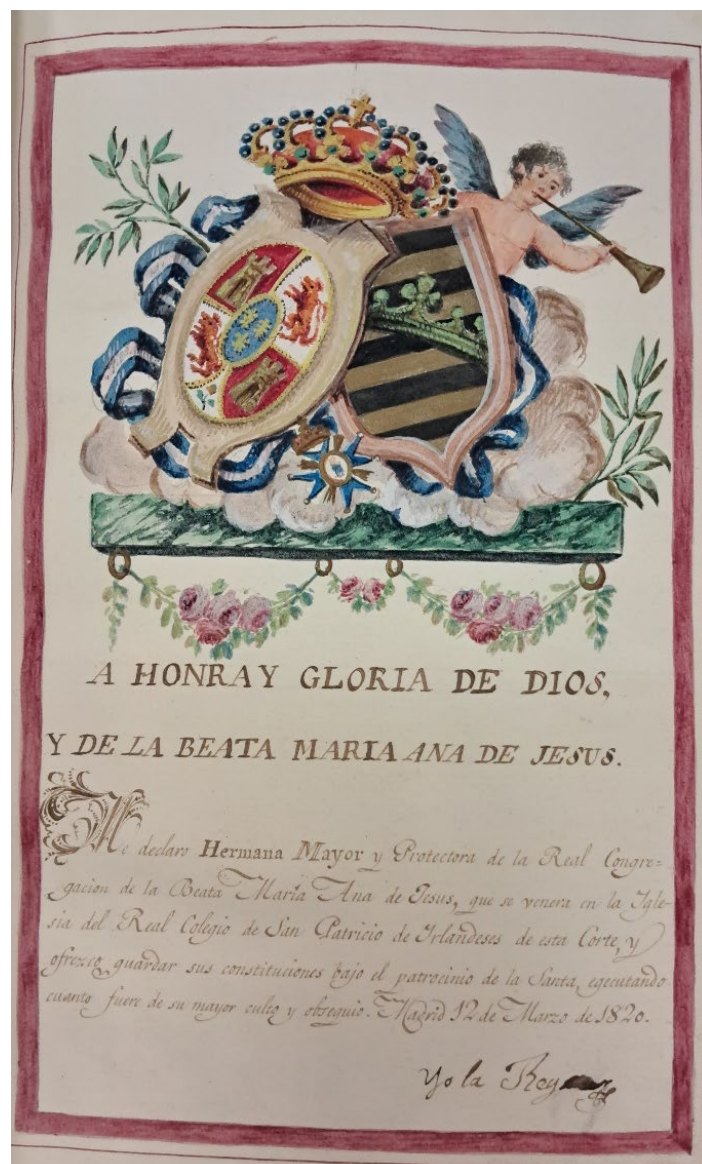 A HONRA Y GLORIA DE DIOS,
Y DE LA BEATA MARIA ANA DE JESUS.
Me declaro Hermana Mayor y Protectora de la Real Congre=
gacion de la Beata Maria Ana de Jesus, que se venera en la Igle-
sia del Real Colegio de San Patricio de Irlandeses de esta Corte, y
ofrezco guardar sus constituciones bajo el patrocinio de la Santa, egecutando
cuanto fuere de su mayor culto y obsequio. Madrid 12 de Marzo de 1820.
Yo la Reyna